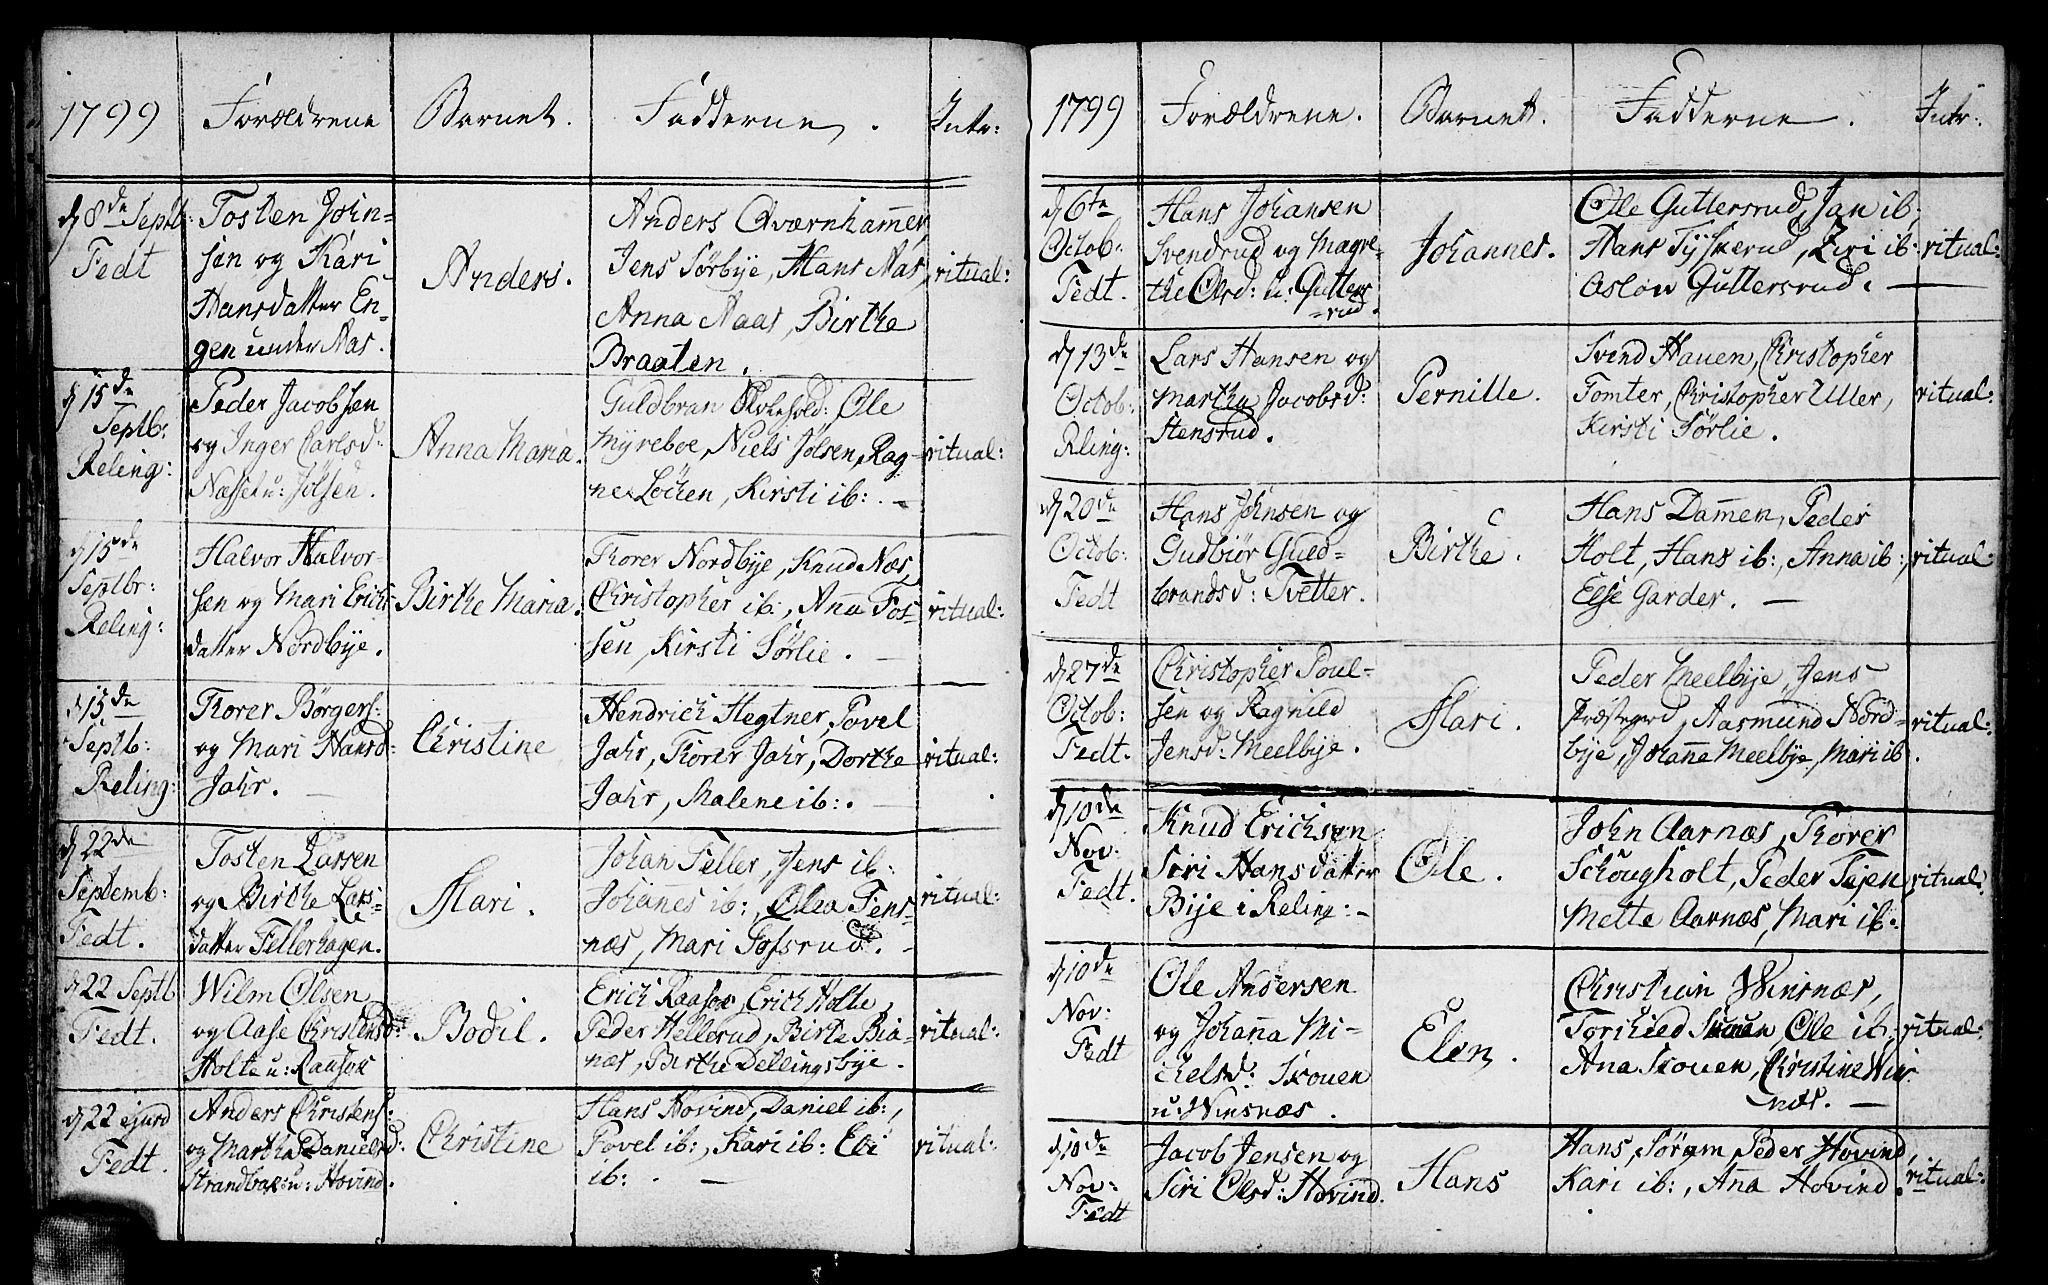 1799 Forældrene Barnet. Fadderne. Intr:
d 8de Septb:
Fedt
Tosten John=
sen og Kari
Hansdatter En=
gen under Nas.
Anders.
Anders Qværnhamer,
Jens Sørbye, Hans Nas,
Anna Naas, Birthe
Braaten.
ritual:
d 15de
Septb:
Reling:
Peder Jacobsen
og Inger Carlsd:
Nasset u: Jølsen.
Anna Maria.
Guldbran Ole
Myreboe, Niels Jølsen, Rag=
ne Løchen, Kirsti ib: . —
ritual:
d 15de
Septbr:
Reling:
Halvor Halvor-
sen og Mari Erichs
datter Nordbye.
Birthe Maria.
Thorer Nordbye, Knud Næs,
Christopher ib:, Ana Fos=
sen, Kirsti Sørlie. —
ritual:
d 15de
Septb:
Reling:
Thorer Børgers:
og Mari Hansd:
Jahr. —
Christine
Hendrich Hegtner, Povel
Jahr, Thorer Jahr, Dorthe
Jahr, Malene ib: . —
ritual:
d 22de
Septemb:
Fedt.
Tosten Larsen
og Birthe Lars=
datter Tellerhagen.
Mari.
Johan Teller, Jens ib:
Johanes ib:, Olea Tens=
næs, Mari Fossrud. -
ritual:
d 22 Septb
Fedt.
Wilm Olsen
og Aase Christensd:
Holte u: Raasok
Bodil.
Erich Raasok, Erich Holte,
Peder Hellerud, Birte Bia=
næs, Birthe Dellingsbye.
ritual:
d 22 ejusd
Fedt.
Anders Christens:
og Martha Danielsd:
Strandbak u: Hovind.
Christine
Hans Hovind, Daniel ib:,
Povel ib:, Kari ib: Eli
ib: . —
ritual:
1799 Forældrene. Barnet. Fadderne. Intr:
d 6te
Octob:
Fedt.
Hans Johansen
Svendrud og Magre=
the Olsd: u: Gutters
=rud.
Johannes.
Ole Guttersrud, Jan ib:
Hans Tyskerud, Ziri ib:
Aslow Guttersrud. —
ritual:
d 13de
Octob:
Rling:
Lars Hansen og
Martha Jacobsd:
Stensrud.
Pernille.
Svend Hauen, Christopher
Tomter, Christopher Uller,
Kirsti Sørlie.
ritual:
d 20de
Octob:
Fedt
Hans Johnsen og
Gudbiør Guld=
brandsd: Tvetter.
Birthe.
Hans Damen, Peder
Holt, Hans ib:, Anna ib:,
Else Garder. —
ritual
d 27de
Octob:
Fedt.
Christopher Poul=
sen og Ragnild
Jensd: Meelbye.
Mari.
Peder Meelbye, Jens
Præstegerd, Aasmund Nord=
bye, Johane Meelbye, Mari ib.
ritual:
d 10de
Nov:
Fedt.
Knud Erichsen
Siri Hansdatter
Bye i Reling: -
Ole.
John Aarnæs, Thorer
Schougholt, Peder Tejen
Mette Aarnæs, Mari ib:
ritual:
d 10de
Nov:
Fedt
Ole Andersen
og Johana Mi=
chelsd: Skouen
u: Winsnæs.
Elen.
Christian Winsnæs,
Torchied Skouen, Ole ib:
Ana Skouen, Christine Win
næs. —
ritual:
d 10de
Nov:
Fedt
Jacob Jensen og
Siri Olsd: Hovind.
Hans
Hans Sørum, Peder Hovind,
Kari ib:, Ana Hovind.
ritual: